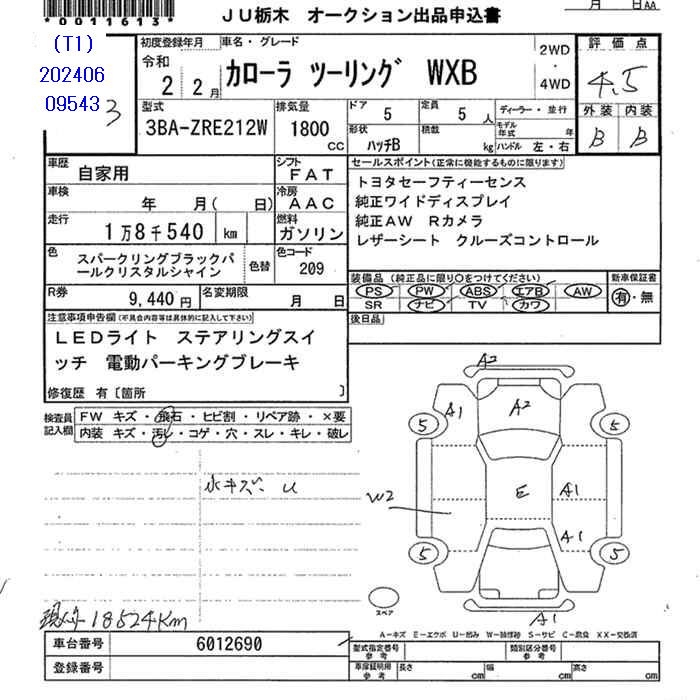 *0011613*
JU栃木 オークション出品申込書
月 日AA
(T1)
202406
09543
3
初度登録年月
令和
2 2月
車名・グレード
カローラ ツーリング WXB
2WD
・
4WD
評価点
4.5
外装 内装
B B
型式
3BA-ZRE212W
排気量
1800
CC
ドア
5
定員
5人
形状
ハッチB
積載
kg
ディーラー・並行
モデル年式 年
ハンドル 左・右
車歴
自家用
シフト
FAT
車検
年 月( 日)
冷房
AAC
走行
1万8千540 km
燃料
ガソリン
色
スパークリングブラックパ
ールクリスタルシャイン
色替
色コード
209
R券
9,440円
名変期限
月 日
セールスポイント(正常に機能するものに限ります)
トヨタセーフティーセンス
純正ワイドディスプレイ
純正AW Rカメラ
レザーシート クルーズコントロール
装備品(純正品に限り○をつけてください)
PS PW ABS エアB AW
SR ナビ TV カワ
新車保証書
有・無
後日品
注意事項申告欄(不具合内容等は具体的に記入して下さい)
LEDライト ステアリングスイ
ッチ 電動パーキングブレーキ
修復歴 有〔箇所 〕
検査員
記入欄
FW キズ・飛石・ヒビ割・リペア跡・×要
内装 キズ・汚レ・コゲ・穴・スレ・キレ・破レ
水キズ U
A2
A1
A2
5
5
W2
E
A1
A1
5
5
スペア
A1
18524Km
A-キズ E-エクボ U-凹み W-補修跡 S-サビ C-腐食 XX-交換済
車台番号
6012690
登録番号
型式指定番号
参考
類別区分番号
参考
車庫証明用
参考
長さ
cm
幅
cm
高さ
cm